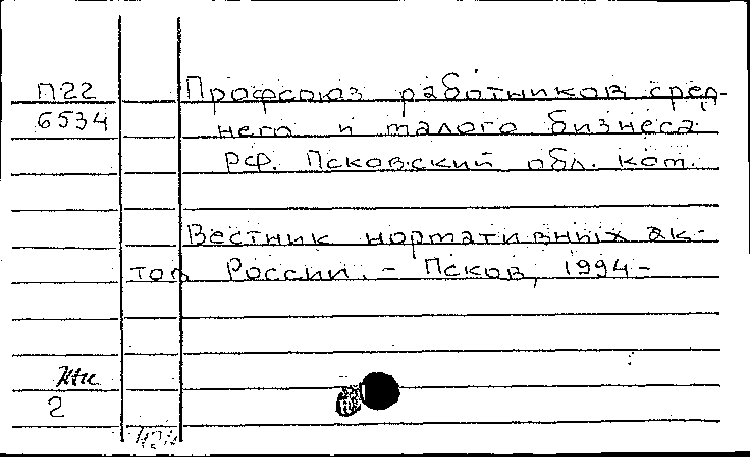 П22 Профсоюз работников сред-
6534 него и малого бизнеса
РФ. Псковский обл. ком.
Вестник нормативных ак-
тов России. – Псков, 1994–
2